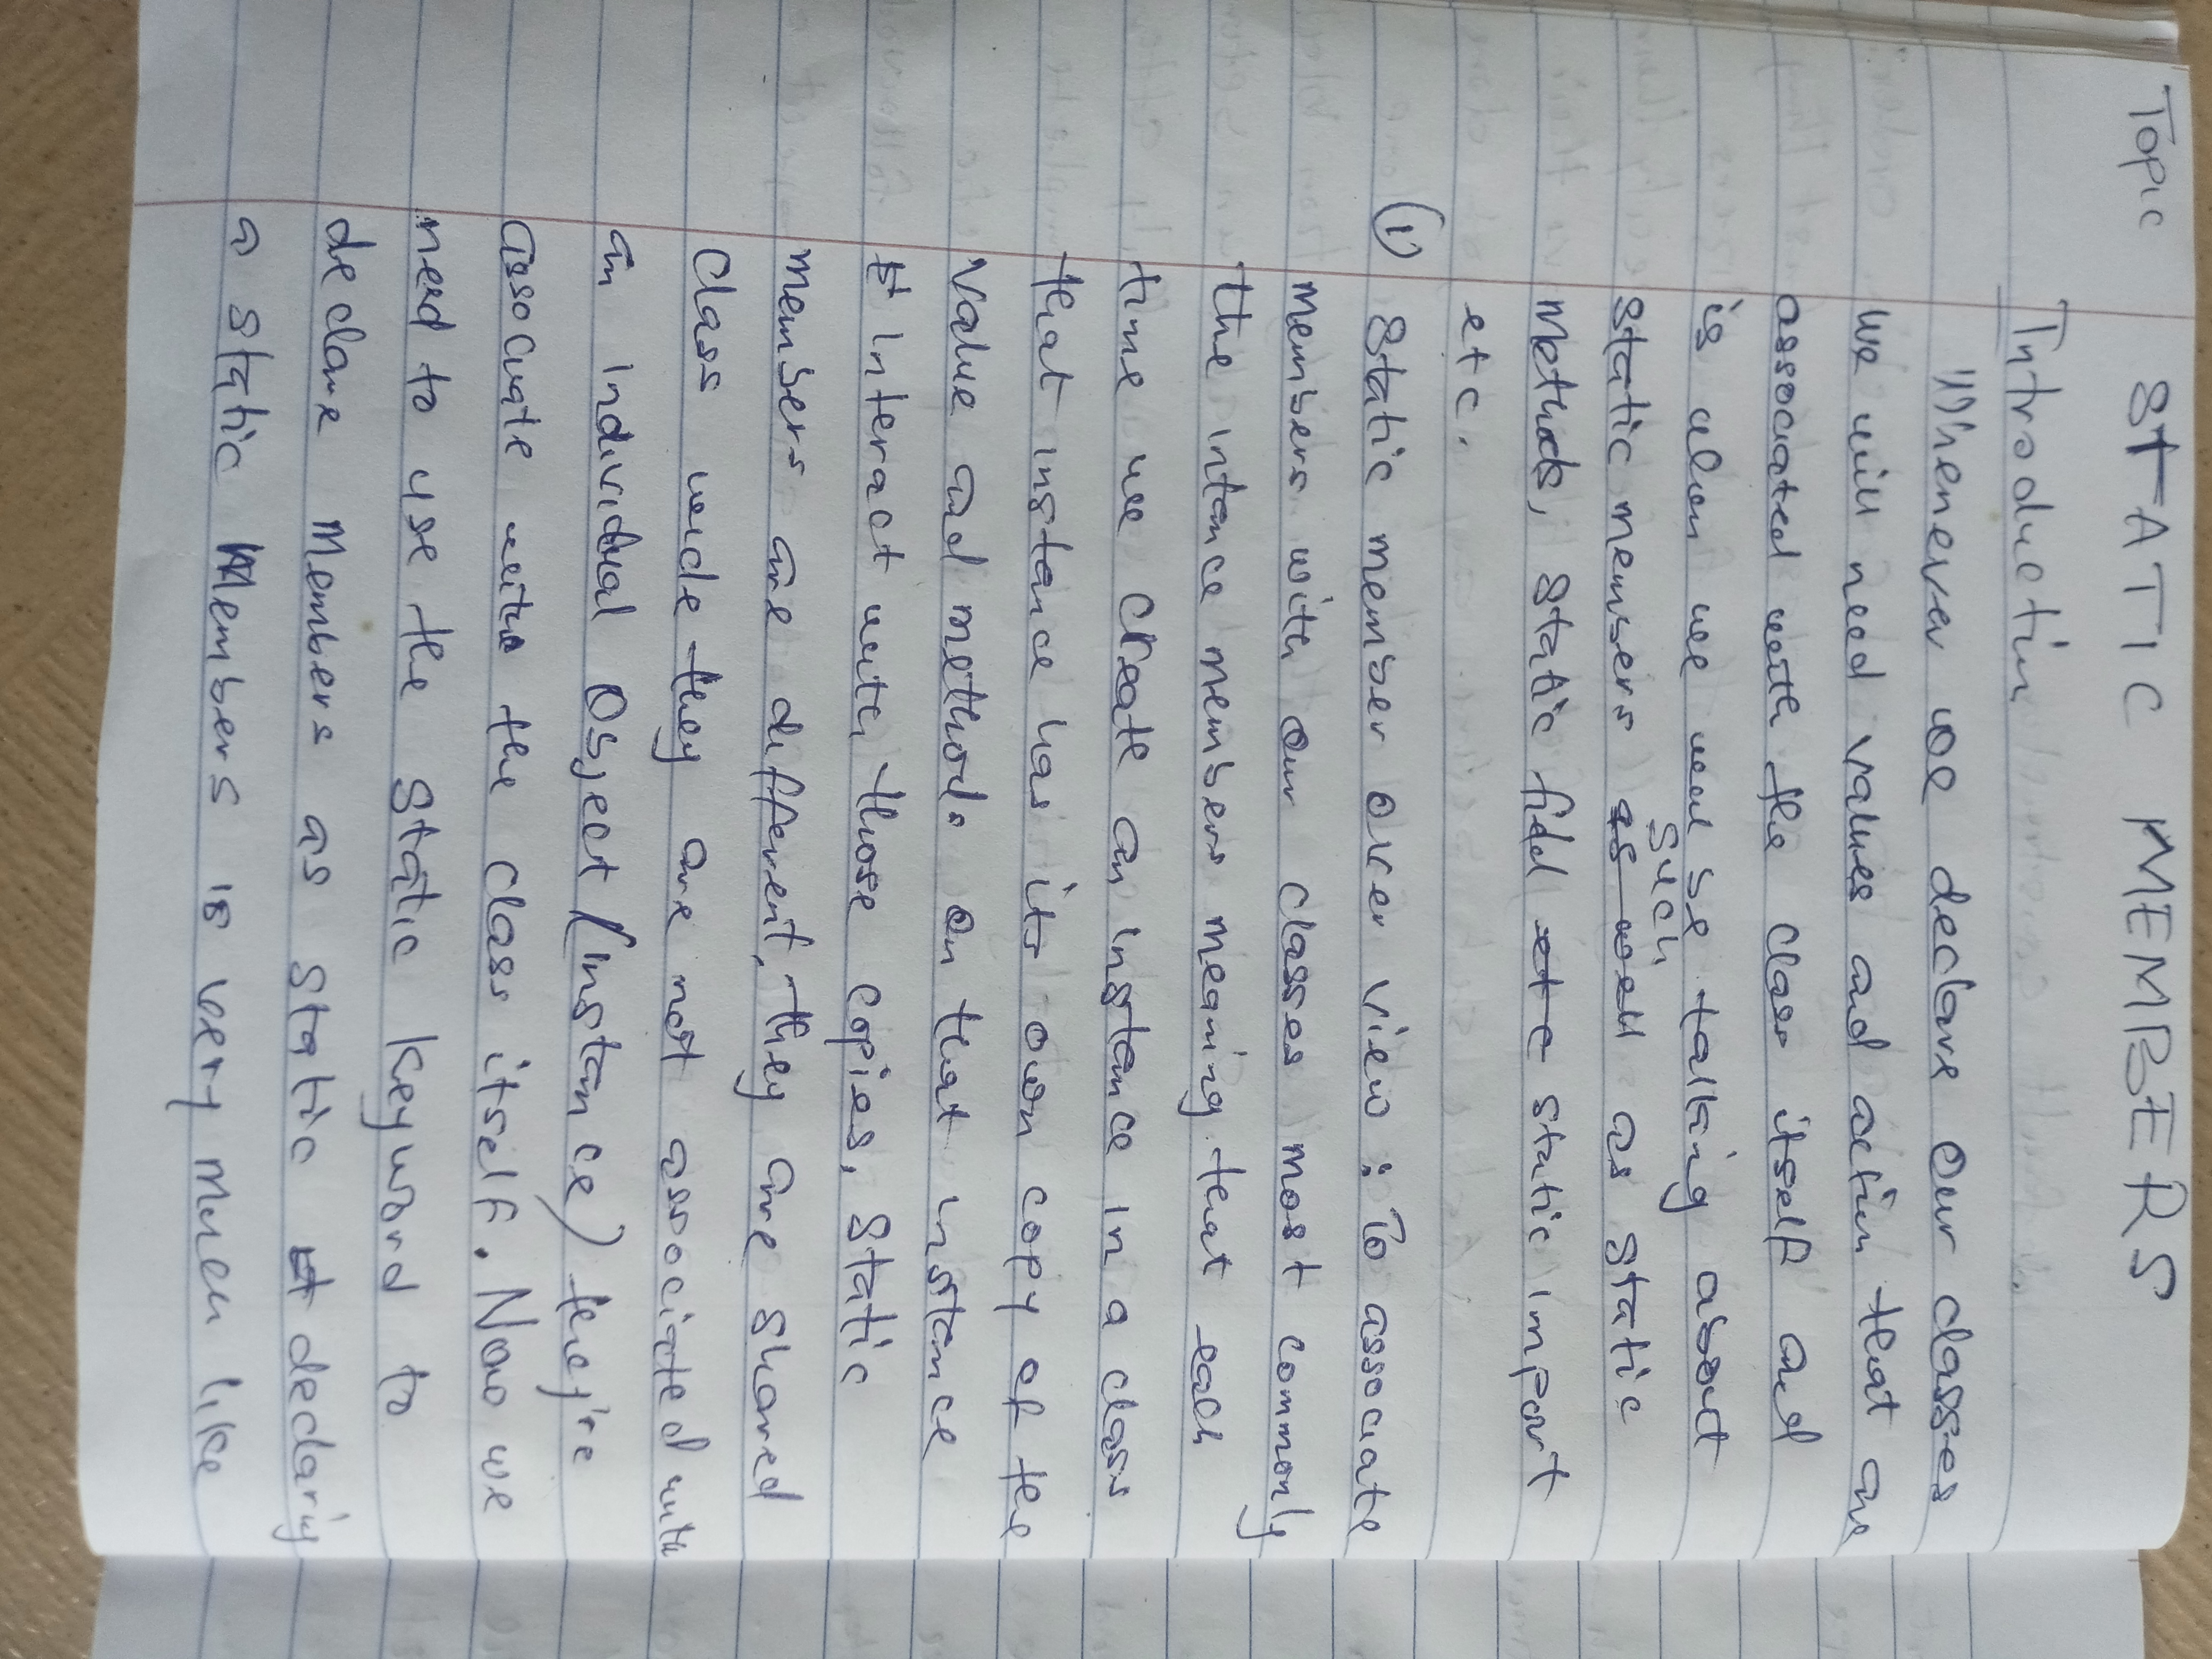 Topic STATIC MEMBERS
Introduction
Whenever we declare our classes
we will need values and action that are
associated with the class itself and
is when we will be talking about
static members such as static
Methods, static field static import
etc.
(1) Static member over view : To associate
members with our classes most commonly
the intance members meaning that each
time we create an instance in a class
that instance has its own copy of the
value and method. on that instance
interact with those copies, static
members are different, they are shared
class wide they are not associated with
an individual object (instance) they're
associate with the class itself. Now we
need to use the static keyword to
declare members as static declaring
a static Members is very much like